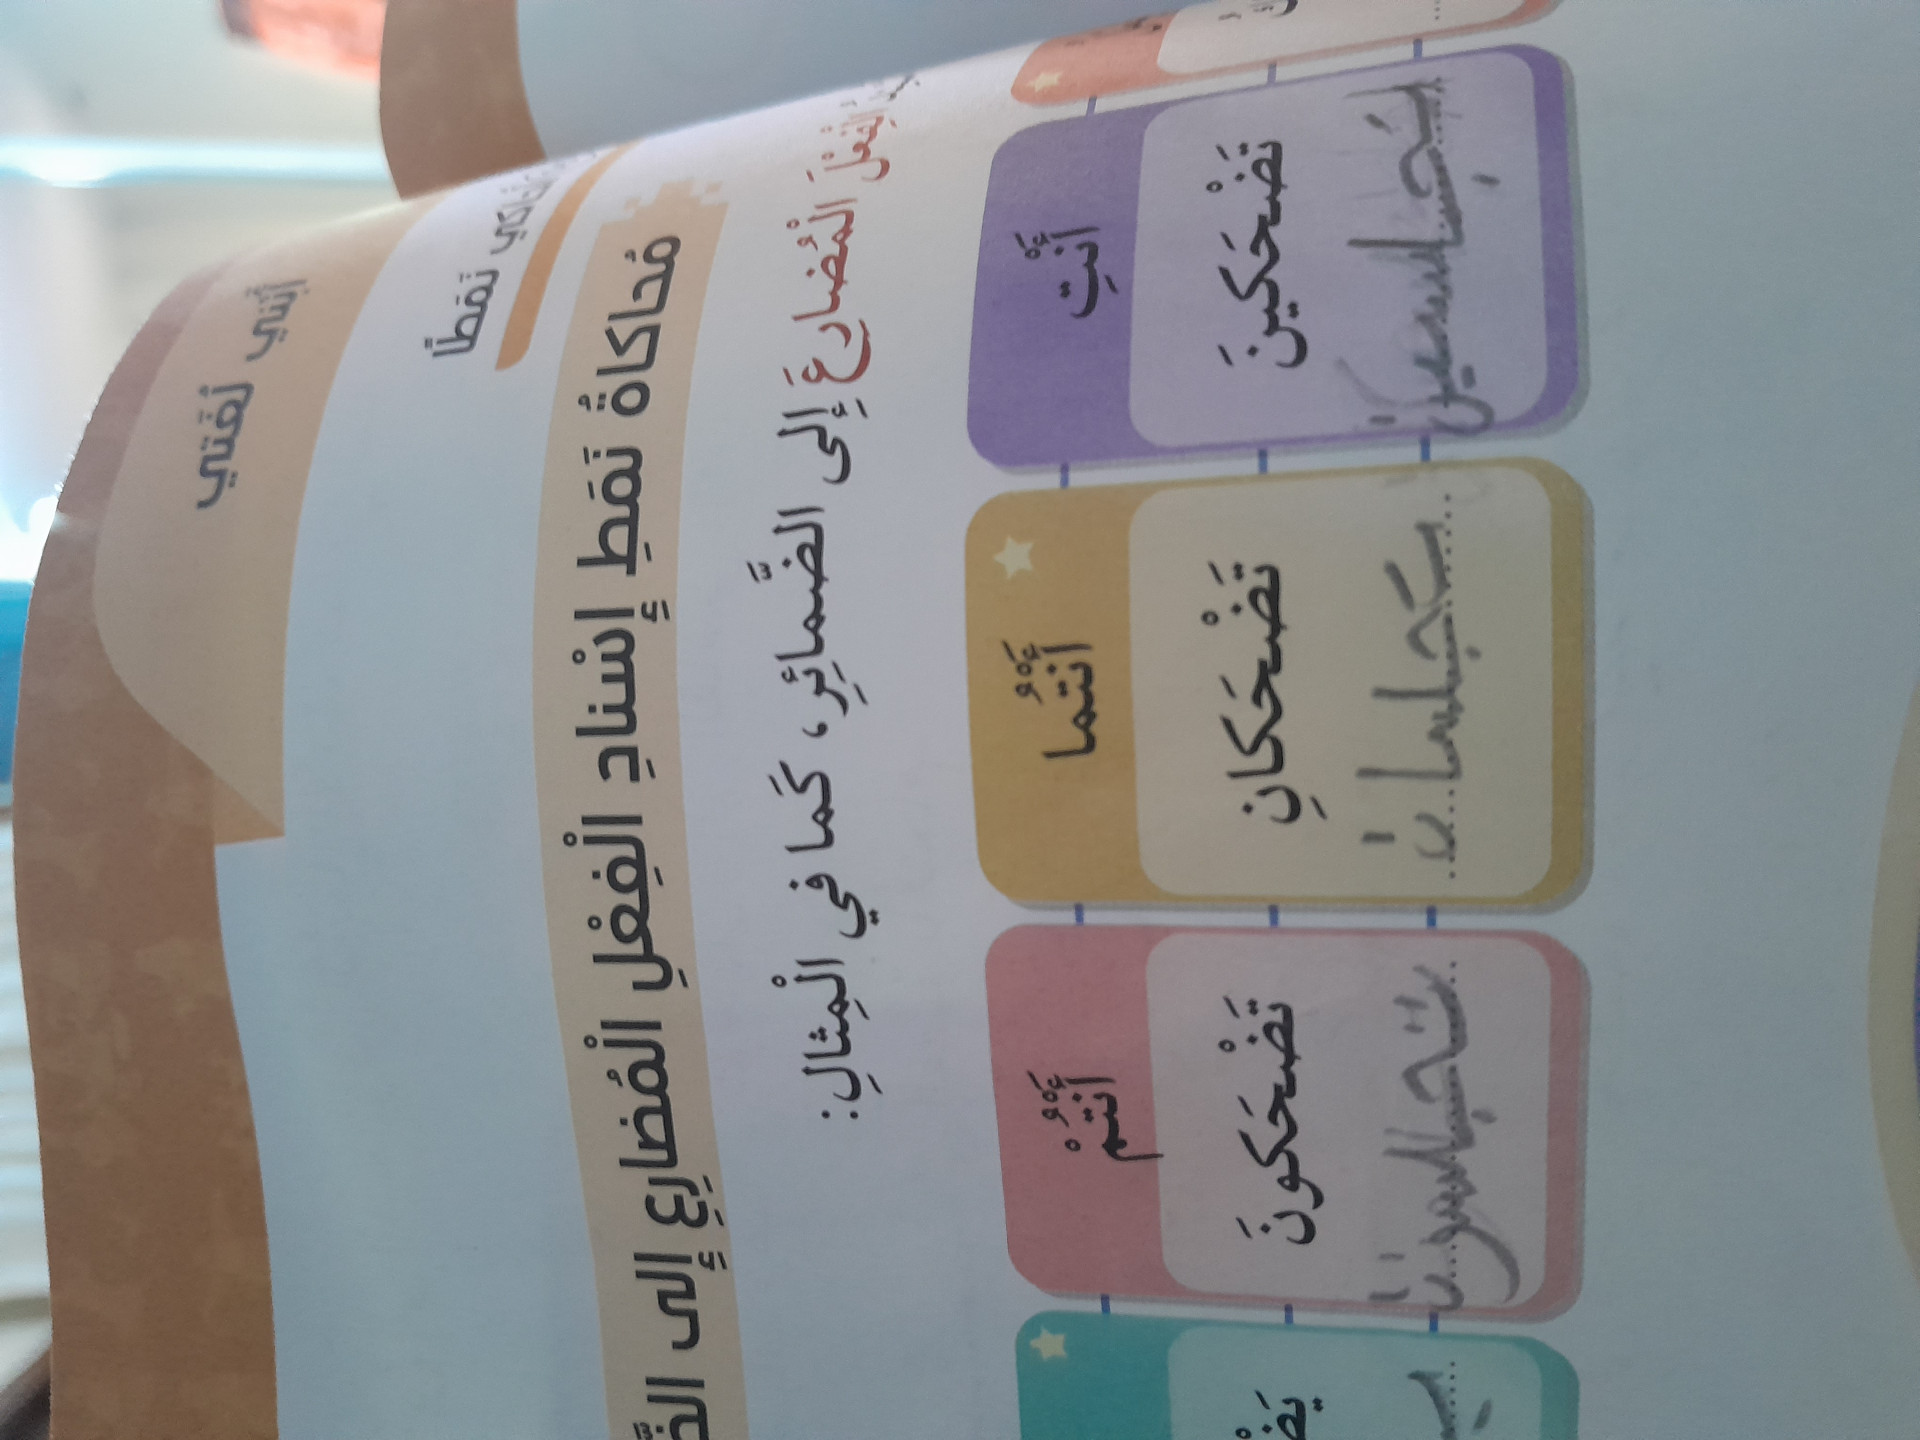 أَبْني لُغَتي
أُحاكي نَمَطًا
مُحاكاةُ نَمَطِ إِسْنادِ الْفِعْلِ الْمُضارِعِ إِلى
الْفِعْلَ الْمُضارِعَ إِلى الضَّمائِرِ، كَما في الْمِثالِ:
أَنْتِ أَنْتُما أَنْتُمْ
تَضْحَكينَ تَضْحَكانِ تَضْحَكونَ
تجلسين تجلسان تجلسون